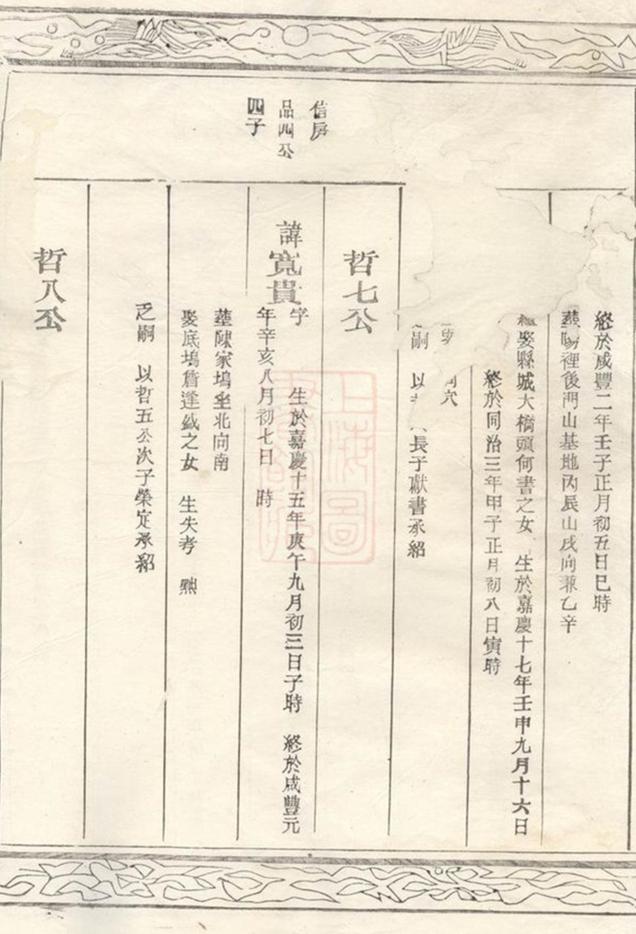 終於咸豐二年壬子正月初五日巳時
裡後門山基地丙辰山戌向兼乙辛
娶縣城大橋頭何書之女　生於嘉慶十七年壬申九月十六日
終於同治三年甲子正月初八日寅時
穴
嗣　以　長子獻書承紹
信房
品四公
四子
哲七公
諱寬貴　字　生於嘉慶十五年庚午九月初三日子時　終於咸豐元
年辛亥八月初七日　時
葬陳家塢坐北向南
娶底塢詹逢鉞之女　生失考　歿
乏嗣　以哲五公次子榮定承紹
哲八公